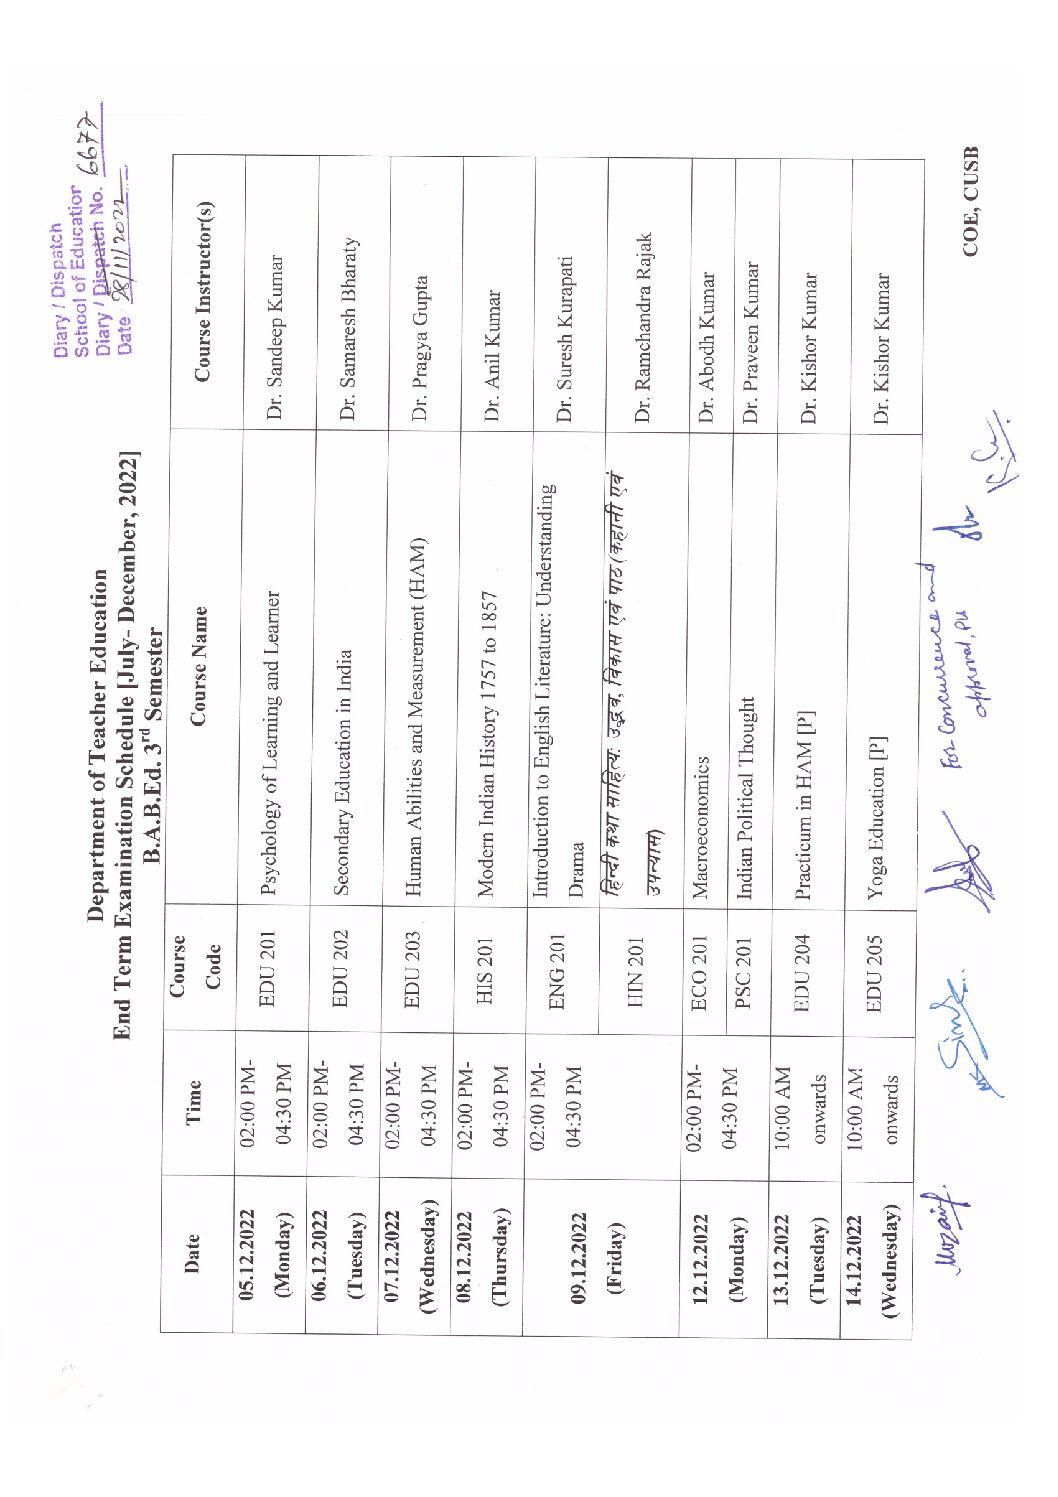 Diary / Dispatch
School of Education
Diary / Dispatch No. 6677
Date 28/11/2022
Department of Teacher Education
End Term Examination Schedule [July- December, 2022]
B.A.B.Ed. 3rd Semester
Date Time Course Code Course Name Course Instructor(s)
05.12.2022 (Monday) 02:00 PM-04:30 PM EDU 201 Psychology of Learning and Learner Dr. Sandeep Kumar
06.12.2022 (Tuesday) 02:00 PM-04:30 PM EDU 202 Secondary Education in India Dr. Samaresh Bharaty
07.12.2022 (Wednesday) 02:00 PM-04:30 PM EDU 203 Human Abilities and Measurement (HAM) Dr. Pragya Gupta
08.12.2022 (Thursday) 02:00 PM-04:30 PM HIS 201 Modern Indian History 1757 to 1857 Dr. Anil Kumar
09.12.2022 (Friday) 02:00 PM-04:30 PM ENG 201 Introduction to English Literature: Understanding Drama Dr. Suresh Kurapati
HIN 201 हिन्दी कथा साहित्य: उद्भव, विकास एवं पाठ (कहानी एवं उपन्यास) Dr. Ramchandra Rajak
12.12.2022 (Monday) 02:00 PM-04:30 PM ECO 201 Macroeconomics Dr. Abodh Kumar
PSC 201 Indian Political Thought Dr. Praveen Kumar
13.12.2022 (Tuesday) 10:00 AM onwards EDU 204 Practicum in HAM [P] Dr. Kishor Kumar
14.12.2022 (Wednesday) 10:00 AM onwards EDU 205 Yoga Education [P] Dr. Kishor Kumar
For Concurrence and
approval, Pls
COE, CUSB